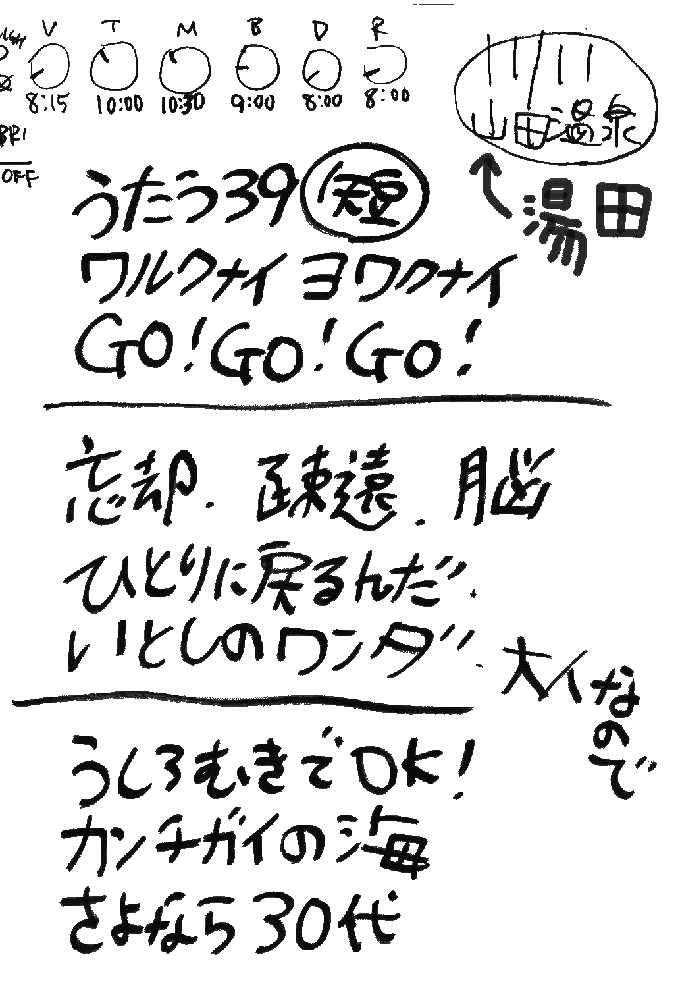 V T M B D R
8:15 10:00 10:30 9:00 8:00 8:00
OFF
山田温泉
湯田
うたう39 短
ワルクナイ ヨワクナイ
GO!GO!GO!
忘却. 疎遠. 脳
ひとりに戻るんだ.
いとしのワンダ.
大人なので
うしろむきでOK!
カンチガイの海
さよなら30代